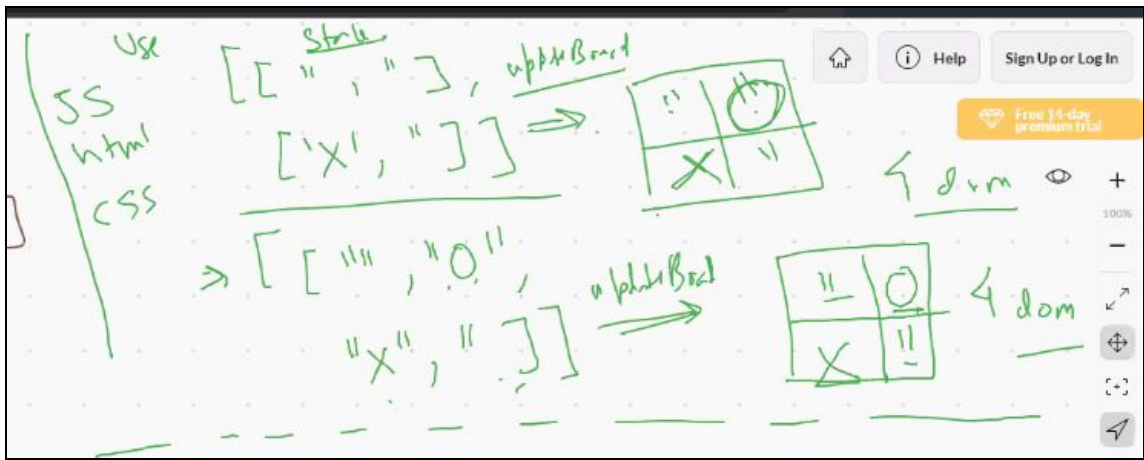 Use
JS
html
css
State
[["  , "],
['X', "]]
updateBoard
⇒
"
"
X
"
4 dom
⇒ [["", "O",
"X", "]]
updateBoard
"
O
X
"
4 dom
Help
Sign Up or Log In
Free 14-day
premium trial
100%